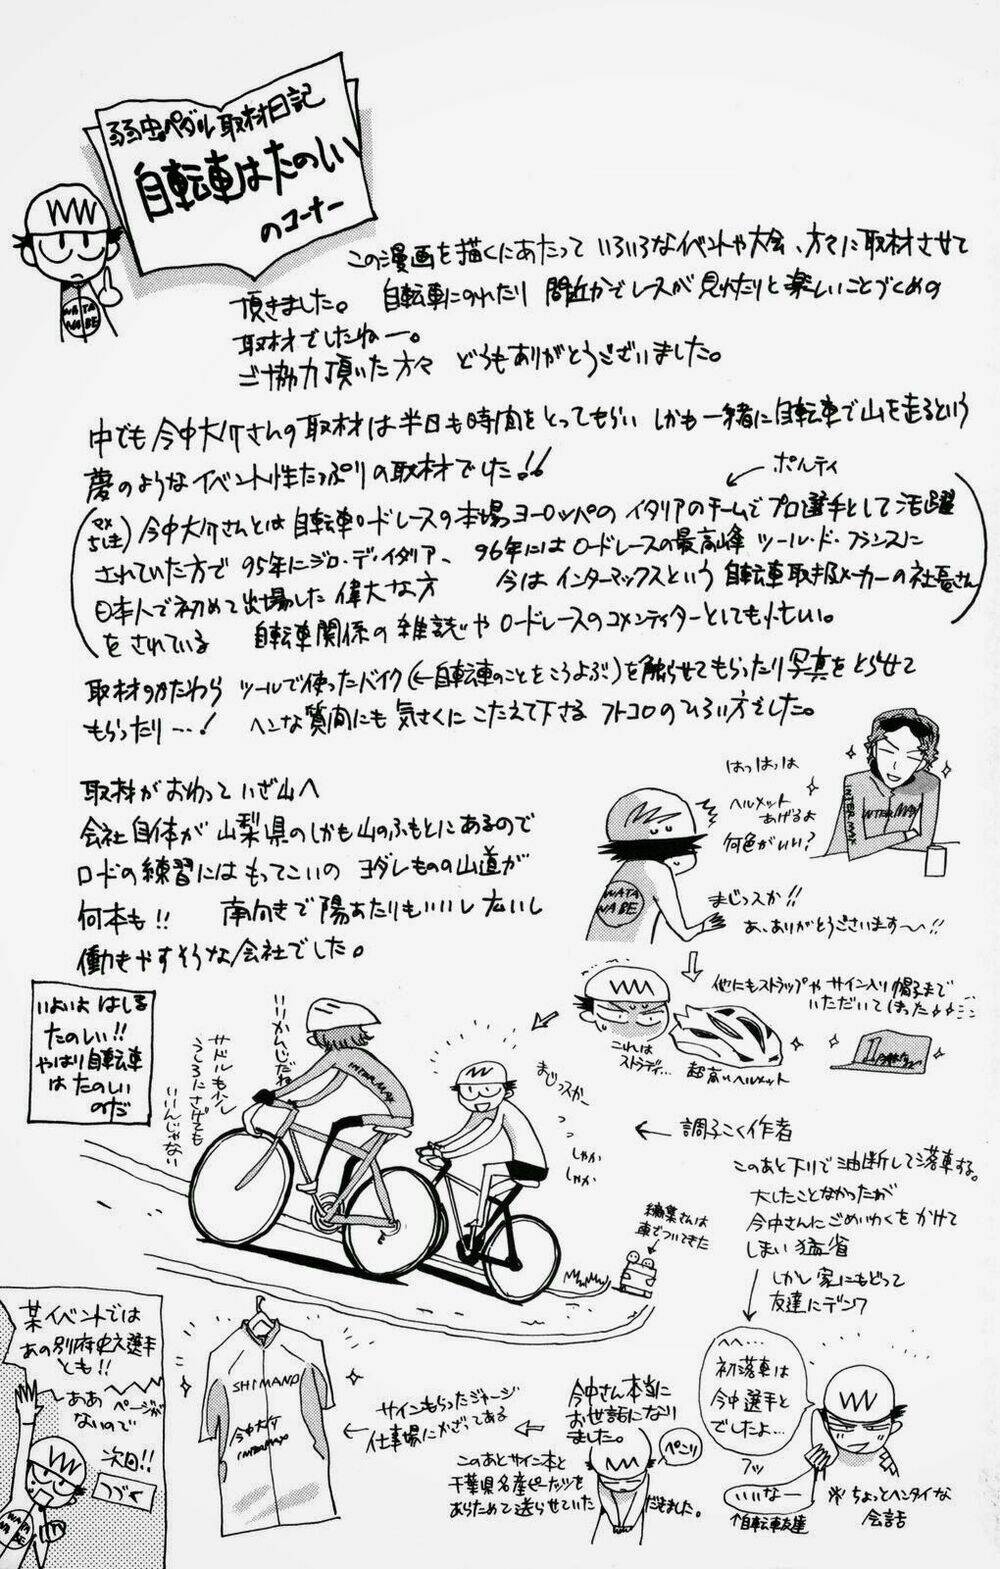 弱虫ペダル取材日記
自転車はたのしい
のコーナー
WATA
NABE
この漫画を描くにあたって いろいろなイベントや大会、方々に取材させて
頂きました。 自転車にのれたり 間近かでレースが見れたりと楽しいことづくめの
取材でしたねー。
ご協力頂いた方々 どうもありがとうございました。
中でも今中大介さんの取材は半日も時間をとってもらい しかも一緒に自転車で山を走るという
夢のようなイベント性たっぷりの取材でした!!
ポルティ
今中大介さんとは自転車ロードレースの本場ヨーロッパのイタリアのチームでプロ選手として活躍
されていた方で 95年にジロ・ディ・イタリア、 96年にはロードレースの最高峰 ツール・ド・フランスに
日本人で初めて出場した偉大な方 今はインターマックスという 自転車取扱メーカーの社長さん
をされている 自転車関係の雑誌やロードレースのコメンティターとしても忙しい。
取材のかたわら ツールで使ったバイク(←自転車のことをこうよぶ)を触らせてもらったり写真をとらせて
もらったり…! ヘンな質問にも 気さくにこたえて下さる フトコロのひろい方でした。
はっはっは
ヘルメット
あげるよ
何色がいい?
INTERMAX
INTERMAX
取材がおわって いざ山へ
会社自体が山梨県のしかも山のふもとにあるので
ロードの練習にはもってこいの ヨダレものの山道が
何本も!! 南向きで陽あたりもいいし広いし
働きやすそうな会社でした。
WATA
NABE
まじっスか!!
あ、ありがとうございます〜!!
他にもストラップや サイン入り帽子まで
いただいてしまった
これは
ストラディ…
超高いヘルメット
いよいよ はしる
たのしい!!
やはり自転車
は たのしい
のだ
いいかんじだね
サドルもう少し
うしろにさげても
いいんじゃない
INTERMAX
まじっスかー
しゃか
しゃか
← 調子こく作者
このあと下りで油断して落車する。
大したことなかったが
今中さんにごめいわくをかけて
しまい 猛省
編集さんは
車でついてきた
しかし 家にもどって
友達にデンワ
へへ…
初落車は
今中選手と
でしたよ…
フッ
いいなー
↑自転車友達
※ちょっとヘンタイな
会話
今中さん本当に
お世話になり
ました。
ペコリ
このあとサイン本と
千葉県名産ピーナッツを
あらためて送らせていただきました。
サインもらったジャージ
仕事場にかざってある
SHIMANO
今中大介
INTERMAX
某イベントでは
あの別府史之選手
とも!!
ーああ ページが
ないので
次回!!
つづく
WATA
NABE